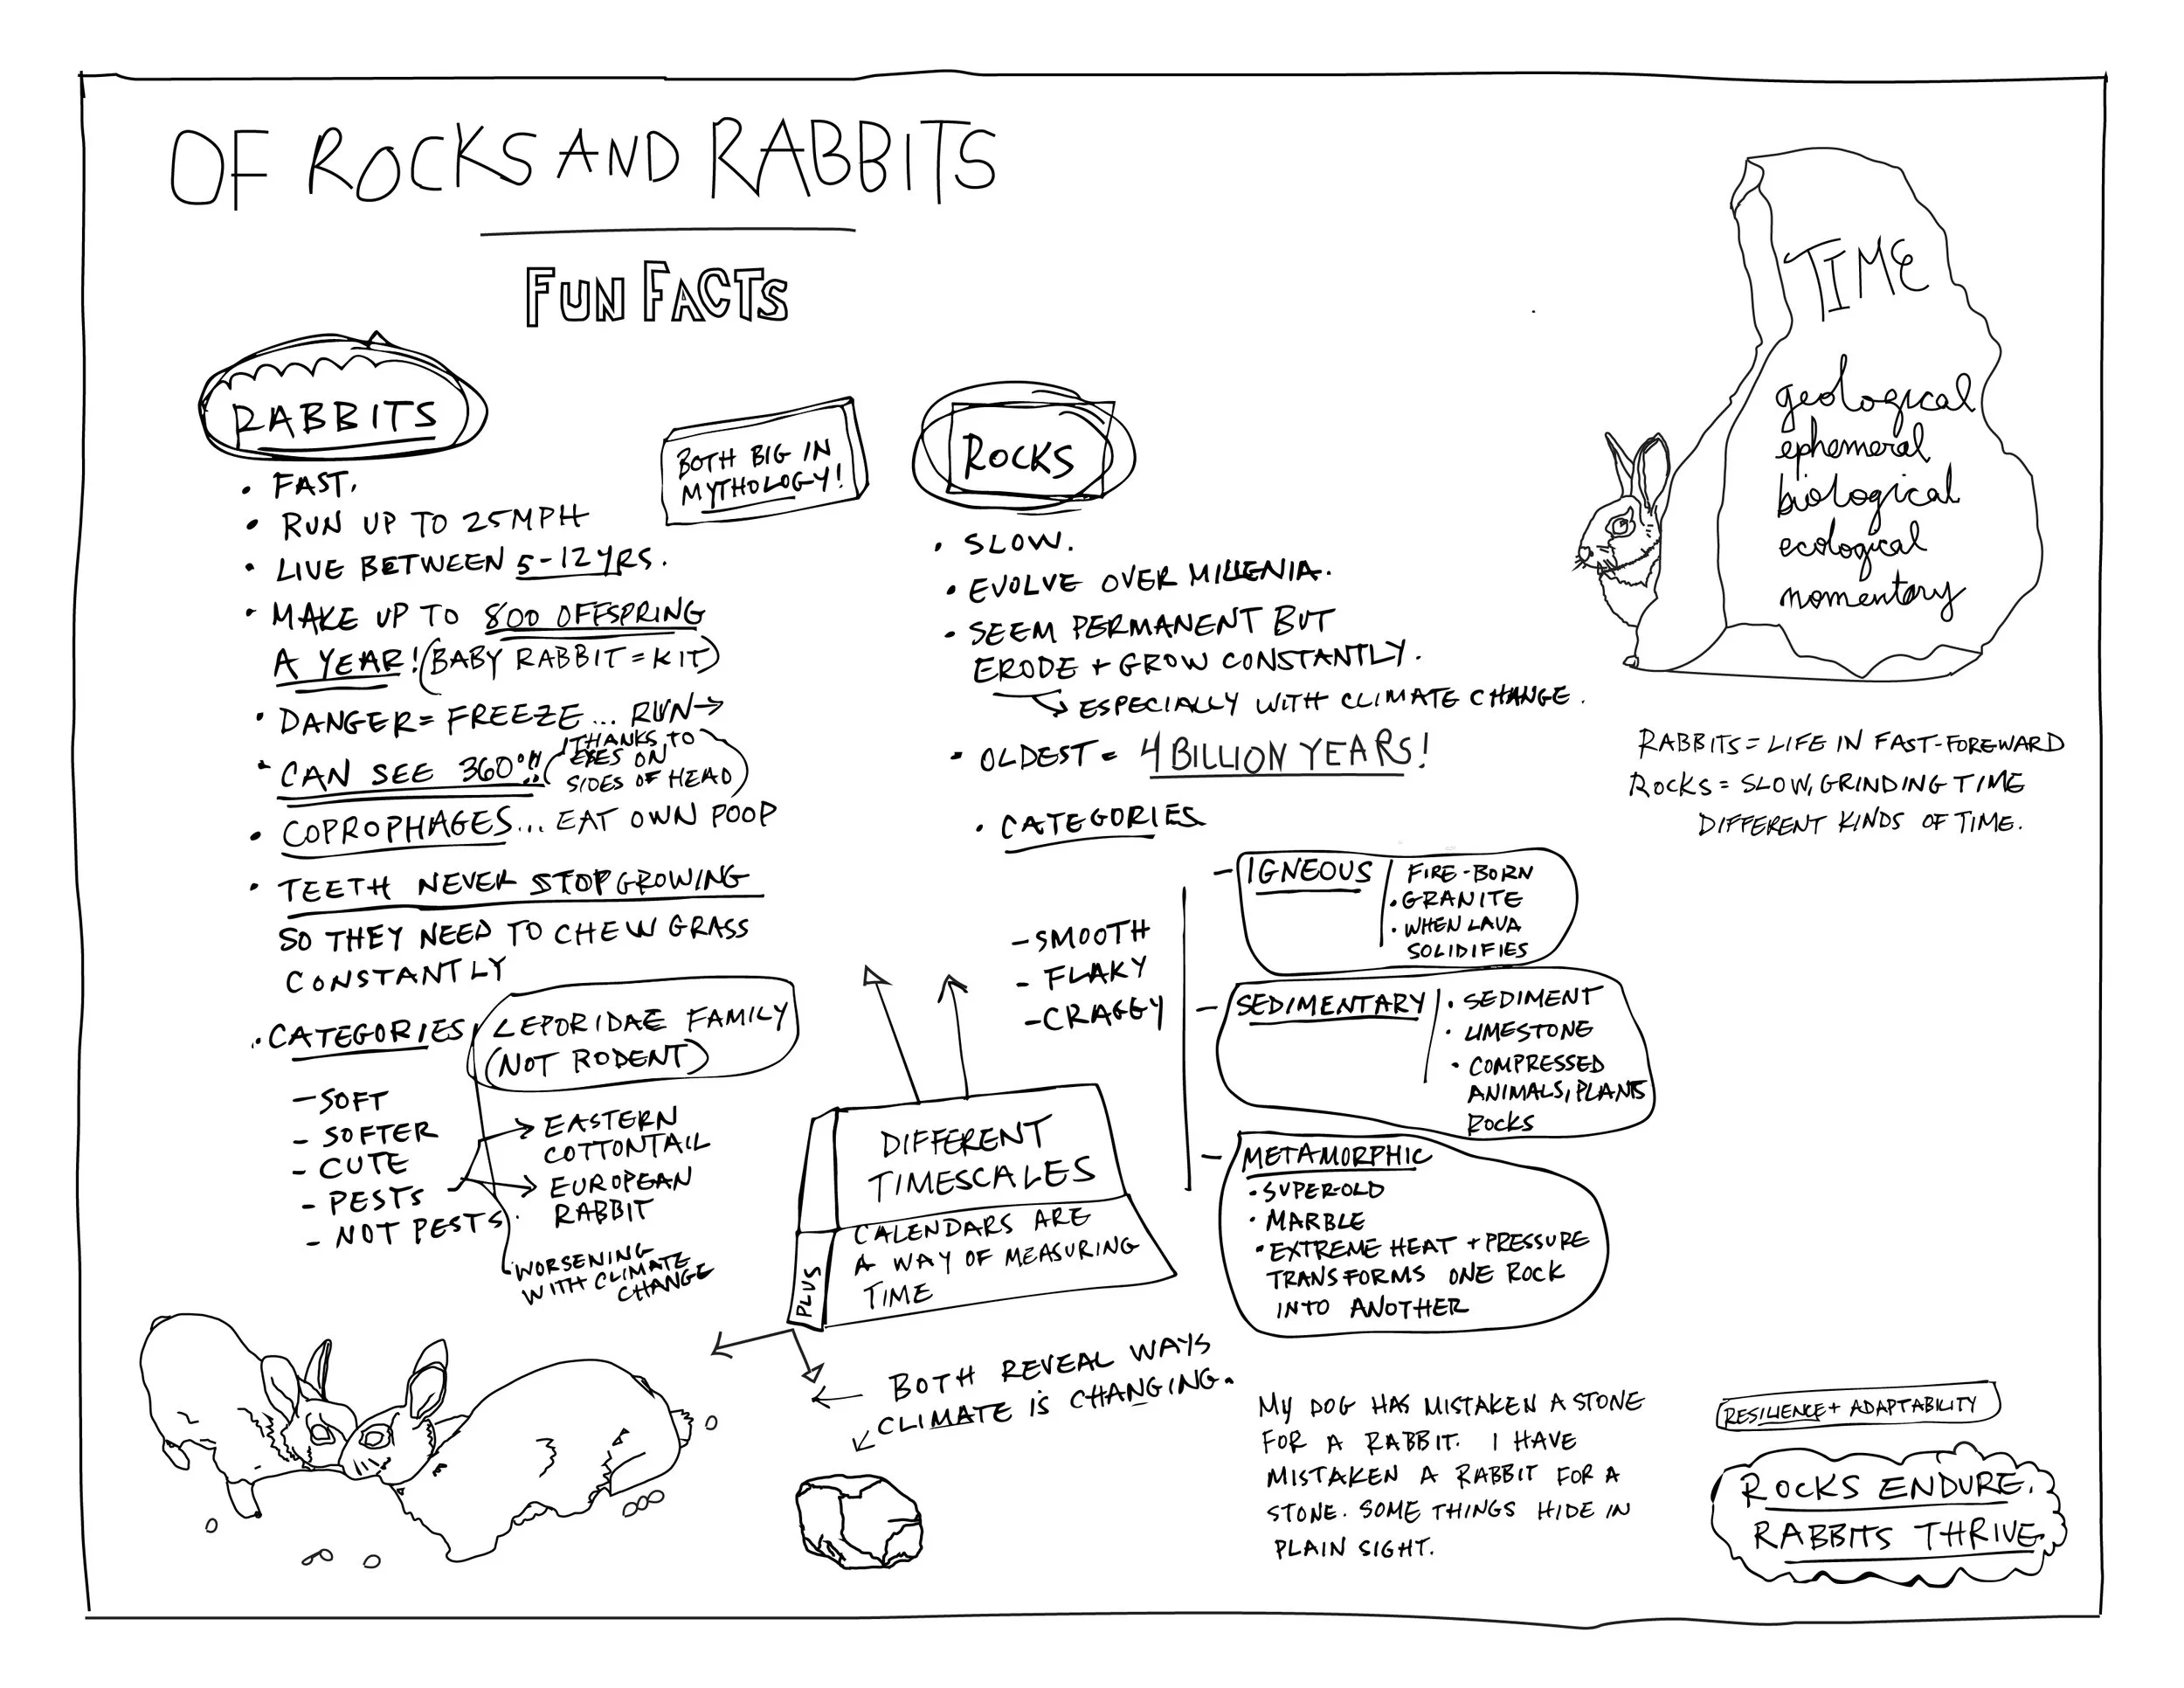 OF ROCKS AND RABBITS
FUN FACTS
RABBITS
• FAST.
• RUN UP TO 25MPH
• LIVE BETWEEN 5-12 YRS.
• MAKE UP TO 800 OFFSPRING
A YEAR! (BABY RABBIT = KIT)
• DANGER = FREEZE... RUN →
• CAN SEE 360°!! (THANKS TO
EYES ON
SIDES OF HEAD)
• COPROPHAGES... EAT OWN POOP
• TEETH NEVER STOP GROWING
SO THEY NEED TO CHEW GRASS
CONSTANTLY
• CATEGORIES
LEPORIDAE FAMILY
(NOT RODENT)
- SOFT
- SOFTER
- CUTE
- PESTS
- NOT PESTS.
→ EASTERN
COTTONTAIL
→ EUROPEAN
RABBIT
WORSENING
WITH CLIMATE
CHANGE
BOTH BIG IN
MYTHOLOGY!
ROCKS
• SLOW.
• EVOLVE OVER MILLENIA.
• SEEM PERMANENT BUT
ERODE + GROW CONSTANTLY.
→ ESPECIALLY WITH CLIMATE CHANGE.
• OLDEST = 4 BILLION YEARS!
• CATEGORIES
- SMOOTH
- FLAKY
- CRAGGY
- IGNEOUS
FIRE-BORN
• GRANITE
• WHEN LAVA
SOLIDIFIES
- SEDIMENTARY
• SEDIMENT
• LIMESTONE
• COMPRESSED
ANIMALS, PLANTS
ROCKS
- METAMORPHIC
• SUPER-OLD
• MARBLE
• EXTREME HEAT + PRESSURE
TRANSFORMS ONE ROCK
INTO ANOTHER
DIFFERENT
TIMESCALES
PLUS
CALENDARS ARE
A WAY OF MEASURING
TIME
← BOTH REVEAL WAYS
CLIMATE IS CHANGING.
TIME
geological
ephemeral
biological
ecological
momentary
RABBITS = LIFE IN FAST-FOREWARD
ROCKS = SLOW, GRINDING TIME
DIFFERENT KINDS OF TIME.
MY DOG HAS MISTAKEN A STONE
FOR A RABBIT. I HAVE
MISTAKEN A RABBIT FOR A
STONE. SOME THINGS HIDE IN
PLAIN SIGHT.
RESILIENCE + ADAPTABILITY
ROCKS ENDURE.
RABBITS THRIVE